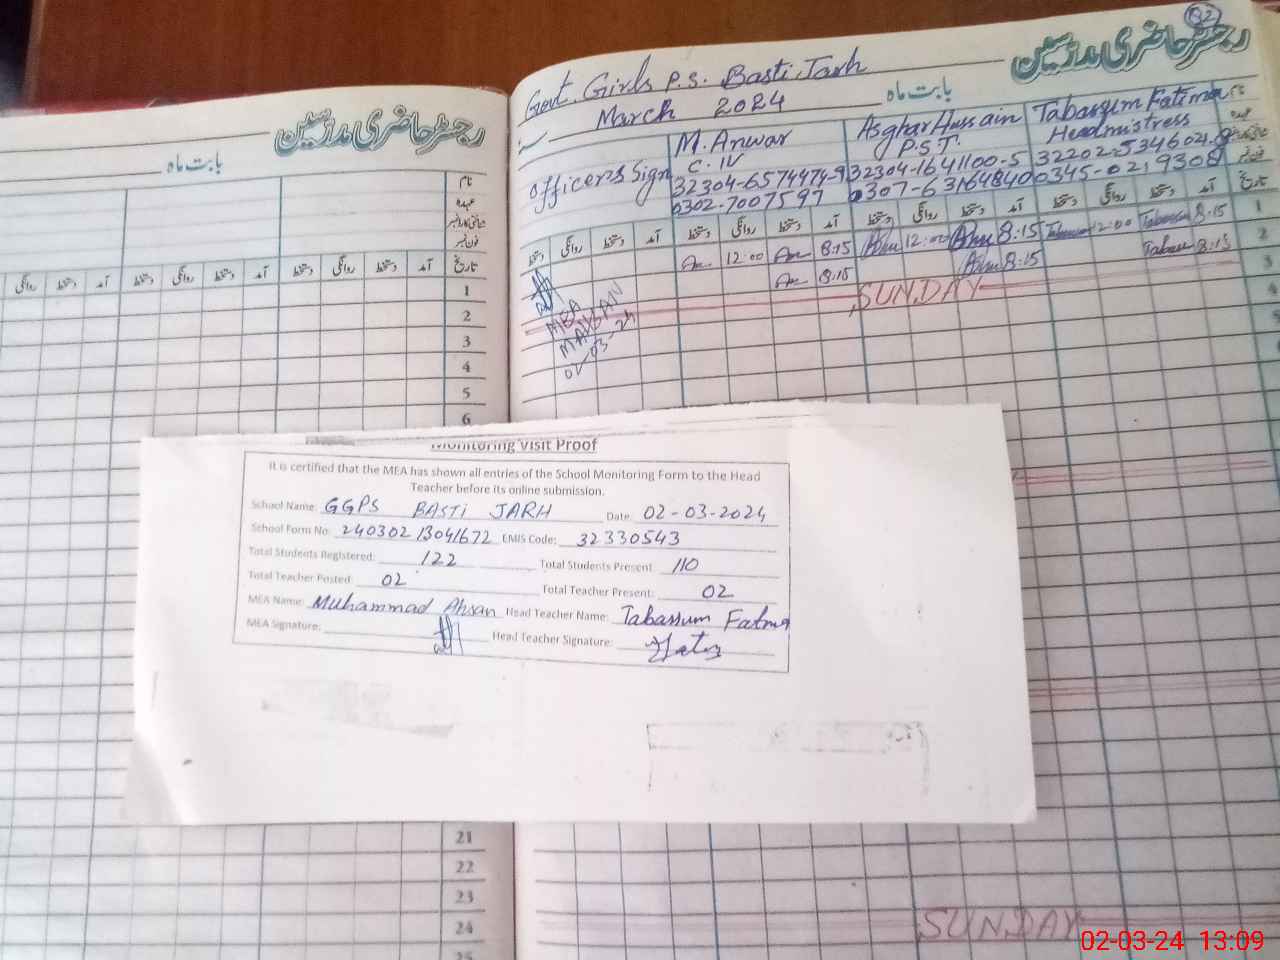 رجسٹر حاضری مدرسین
بابت ماہ
نام
عہدہ
شناختی کارڈ نمبر
فون نمبر
تاریخ آمد دستخط روانگی دستخط آمد دستخط روانگی دستخط آمد دستخط روانگی
1
2
3
4
5
6
21
22
23
24
25
82
رجسٹر حاضری مدرسین
Govt. Girls P.S. Basti Jarh
March 2024 بابت ماہ
Officers Sign
M. Anwar
C. IV
32304-6574474-9
0302-7007597
Asghar Hussain
P.S.T.
32304-1641100-5
0307-6316484
Tabassum Fatima
Headmistress
32202-5346042-8
0345-0219308
نام
تاریخ
دستخط روانگی دستخط آمد دستخط روانگی دستخط آمد دستخط روانگی دستخط آمد دستخط روانگی دستخط آمد
An 12:00 An 8:15 12:00 8:15 12:00 8:15 1
An 8:15 8:15 8:15 2
SUNDAY 3
4
MEA
AHSAN
02-03-24
Monitoring Visit Proof
It is certified that the MEA has shown all entries of the School Monitoring Form to the Head
Teacher before its online submission.
School Name: GGPS BASTI JARH Date: 02-03-2024
School Form No: 24030213041672 EMIS Code: 32330543
Total Students Registered: 122 Total Students Present: 110
Total Teacher Posted: 02 Total Teacher Present: 02
MEA Name: Muhammad Ahsan Head Teacher Name: Tabassum Fatima
MEA Signature: Head Teacher Signature:
SUNDAY
02-03-24 13:09